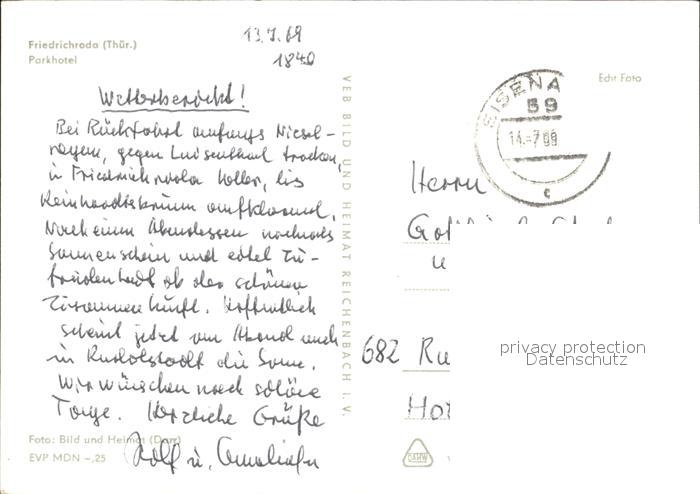 Friedrichroda (Thür.)
Parkhotel
13.7.69
1840
Wetterbericht!
Bei Rückfahrt anfangs Niesel-
regen, gegen Luisenthal trocken,
in Friedrichroda heller, bis
Reinhardsbrunn aufklarend.
Nach einem Abendessen nochmals
Sonnenschein und eitel Zu-
friedenheit ob der schönen
Zusammenkunft. Hoffentlich
scheint jetzt am Abend auch
in Rudolstadt die Sonne.
Wir wünschen noch schöne
Tage. Herzliche Grüße
Rolf u.
Foto: Bild und Heimat (Darr)
EVP MDN –,25
VEB BILD UND HEIMAT REICHENBACH I. V.
Echt Foto
EISENA
59
14.-7.69
c
Herrn
u
682 Ru
Ho
privacy protection
Datenschutz